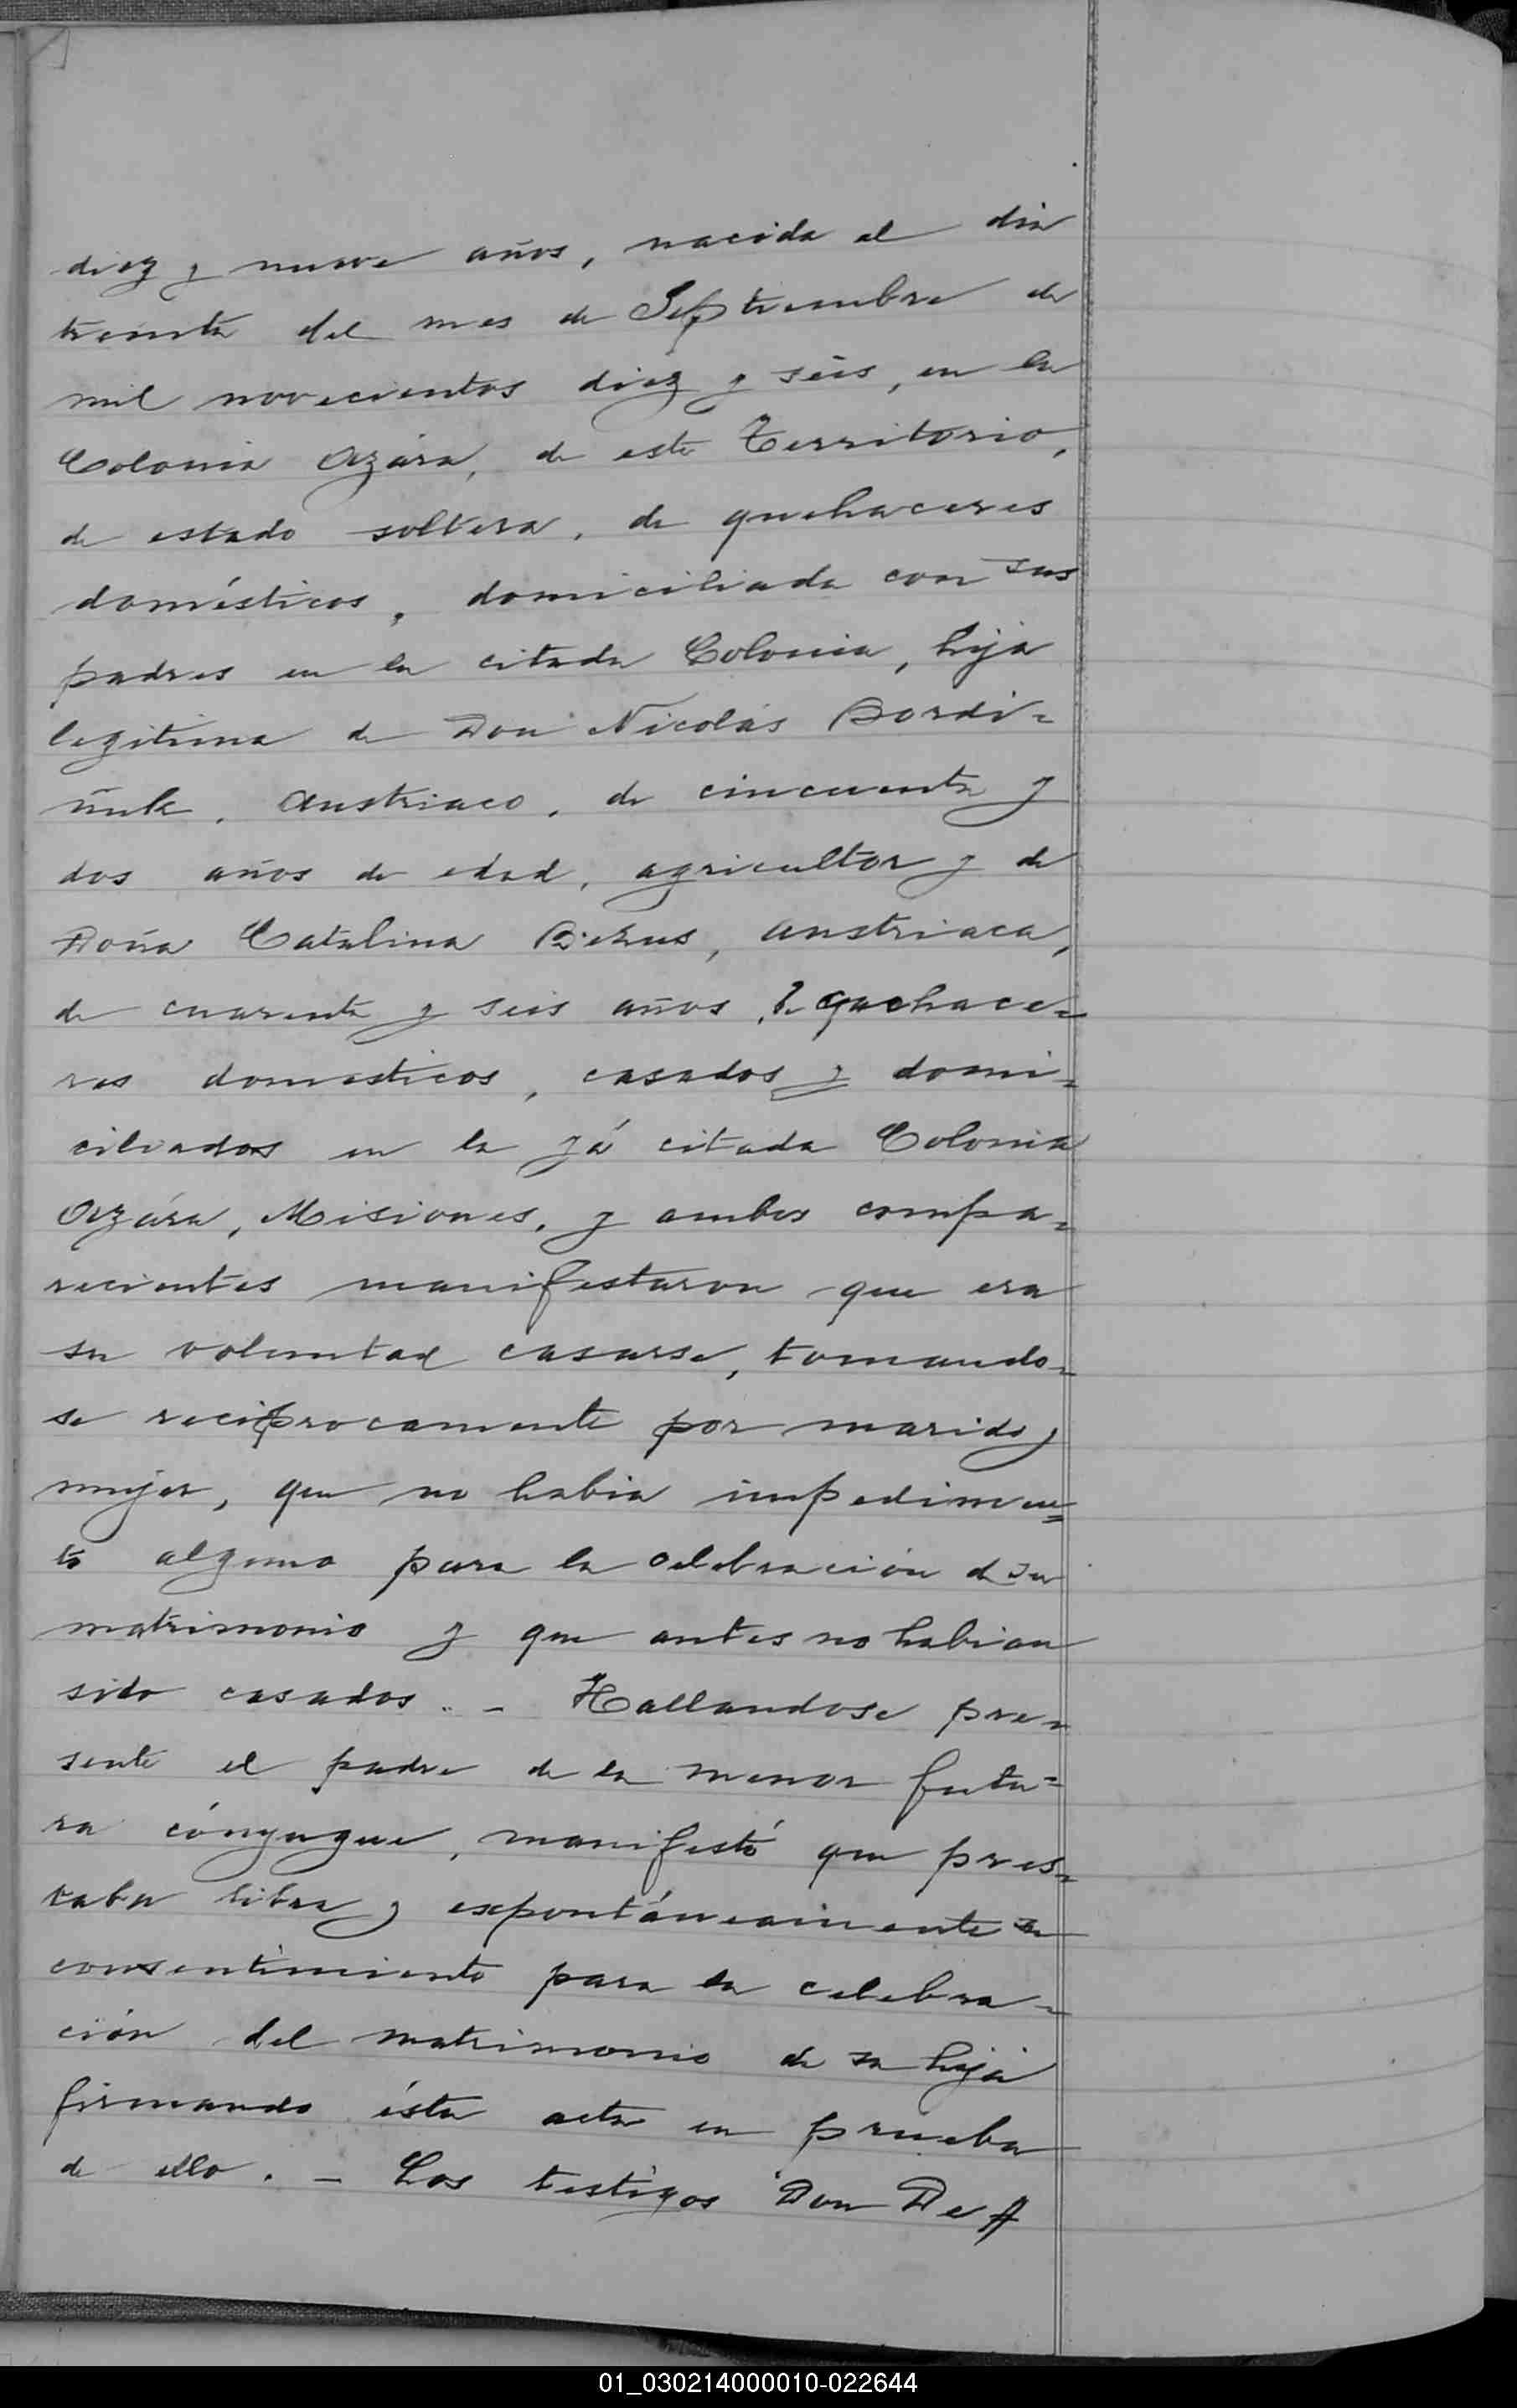 diez y nueve años, nacida el dia
treinta del mes de Septiembre de
mil novecientos diez y seis, en la
Colonia Azára, de este Territorio,
de estado soltera, de quehaceres
domésticos, domiciliada con sus
padres en la citada Colonia, hija
legitima de Don Nicolás Bordi=
ñuk, Austriaco, de cincuenta y
dos años de edad, agricultor y de
Doña Catalina austriaca,
de cuarenta y seis años, de quehace=
res domesticos, casados y domi=
ciliados en la yá citada Colonia
Azára, Misiones, y ambos compa=
recientes manifestaron que era
su voluntad casarse, tomando=
se reciprocamente por marido y
mujer, que no habia impedimen=
to alguno para la celebración de su
matrimonio y que antes no habian
sido casados.. - Hallandose pre=
sente el padre de la menor futu=
ra cónyugue, manifestó que pres=
taba libre y expontáneamente su
consentimiento para la celebra=
ción del matrimonio de su hija
firmando ésta acta en prueba
de ello. - Los testigos Don
01_030214000010-022644